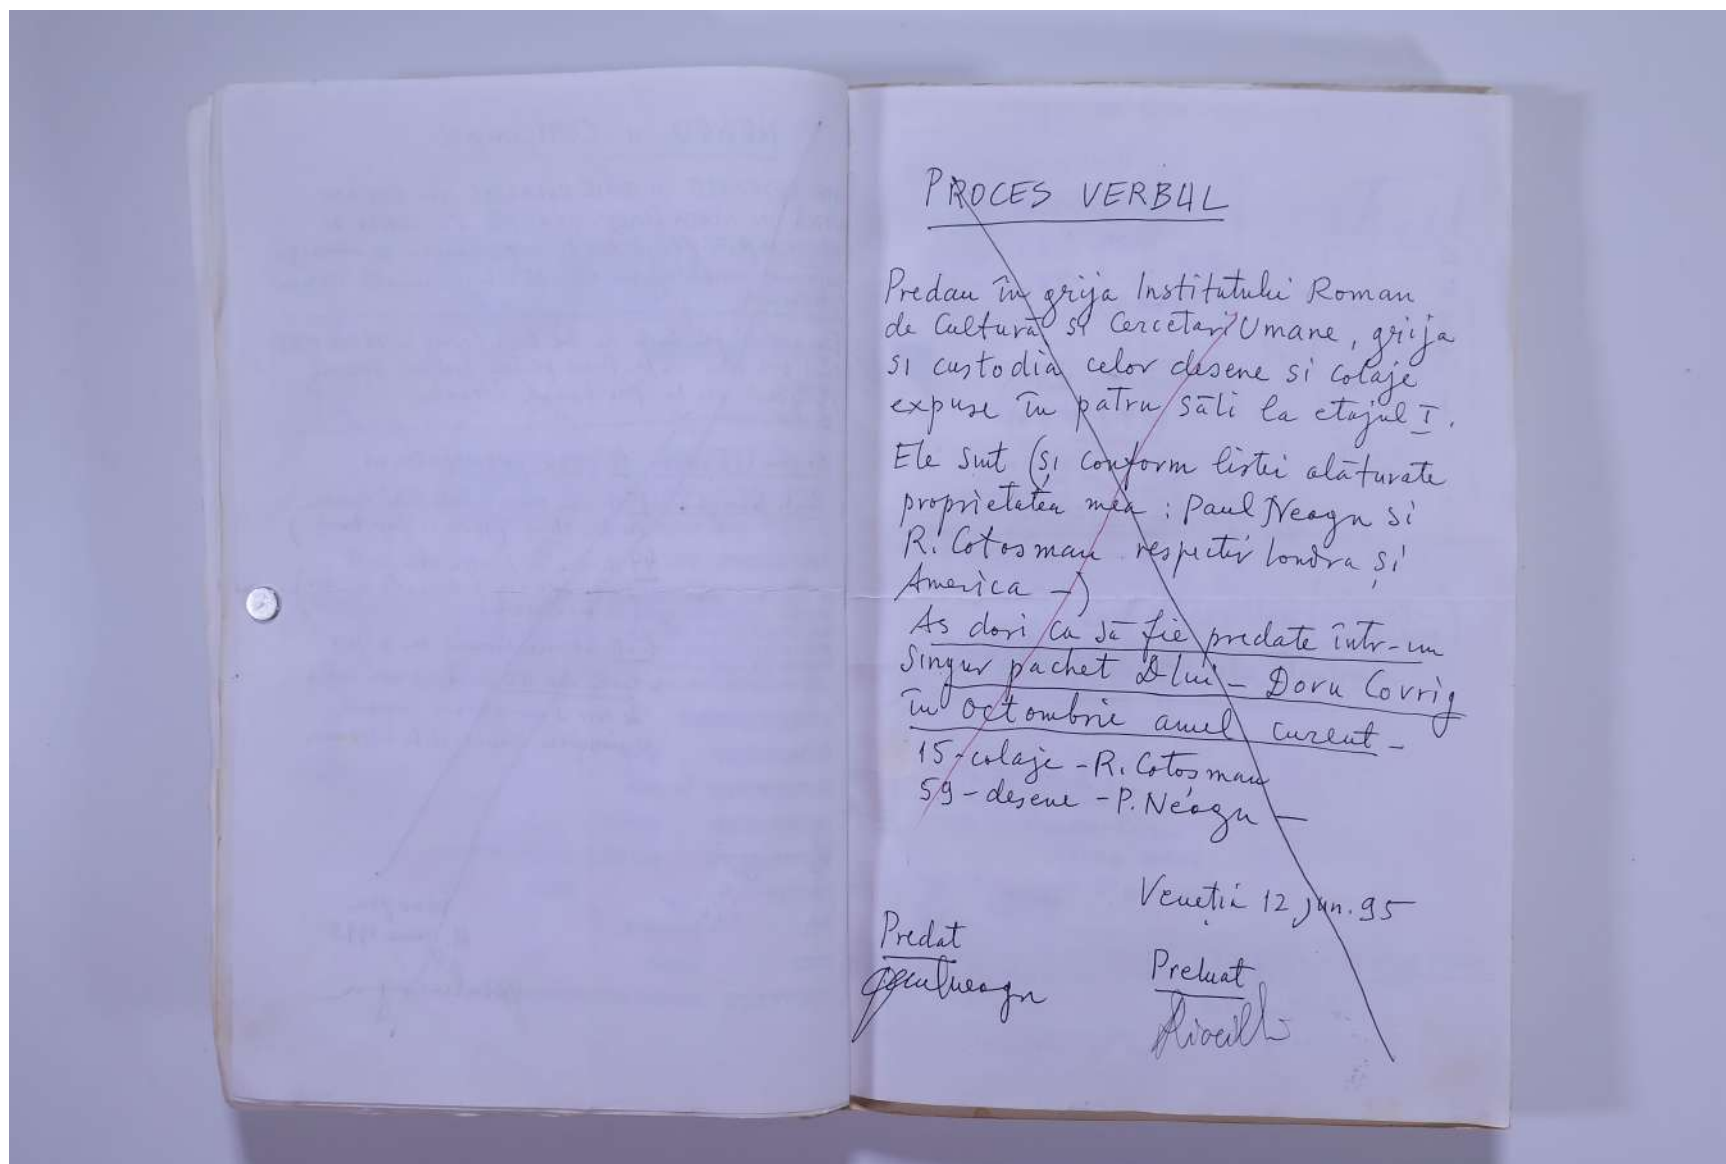 PROCES VERBAL
Predau în grija Institutului Roman
de Cultură si Cercetari Umane, grija
si custodia celor desene si colaje
expuse în patru săli la etajul I.
Ele sînt (și conform listei alăturate
proprietatea mea : Paul Neagu si
R. Cotosman respectiv Londra și
America -)
As dori ca să fie predate într-un
singur pachet Dlui - Doru Covrig
în octombrie anul curent -
15 - colaje - R. Cotosman
59 - desene - P. Neagu -
Veneția 12 jun. 95
Predat
Paul Neagu
Preluat